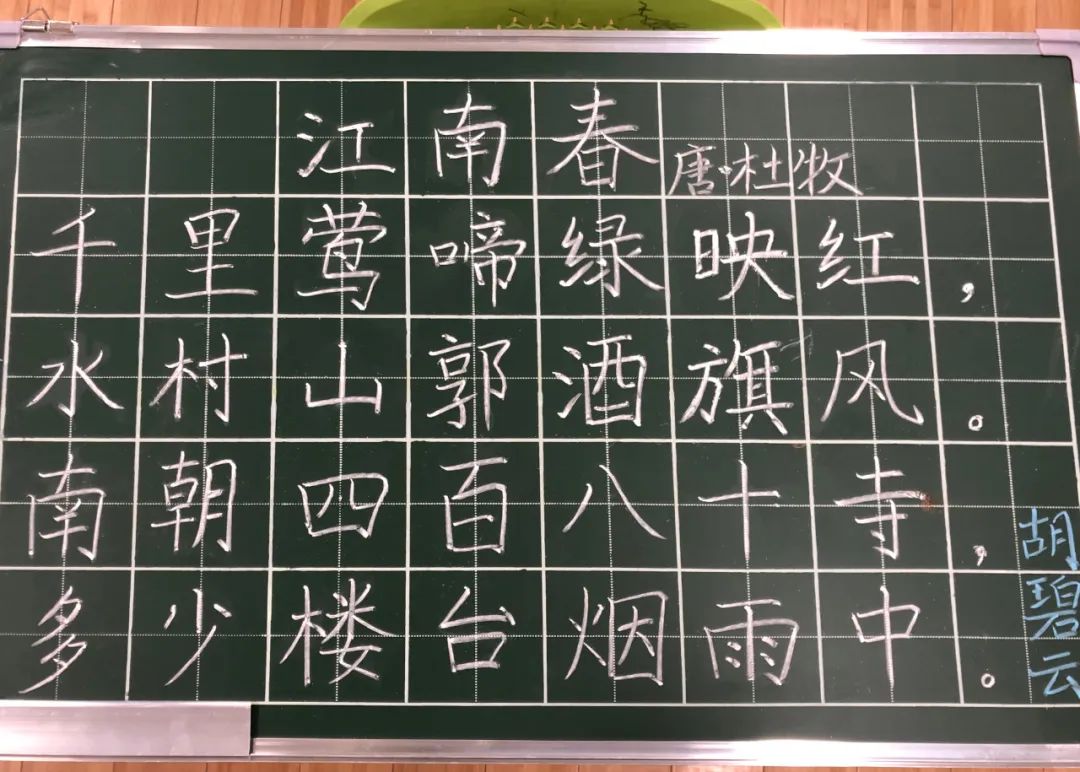 江南春 唐·杜牧
千里莺啼绿映红，
水村山郭酒旗风。
南朝四百八十寺，
多少楼台烟雨中。
胡碧云